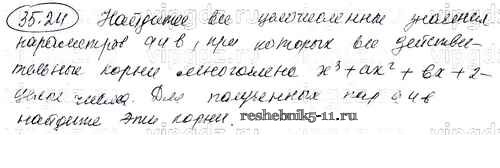 35.24 Найдите все целочисленные значения
параметров а и в, при которых все действи-
тельные корни многочлена x³+ax²+вx+2-
целые числа. Для полученных пар а и в
найдите эти корни.
reshebnik5-11.ru